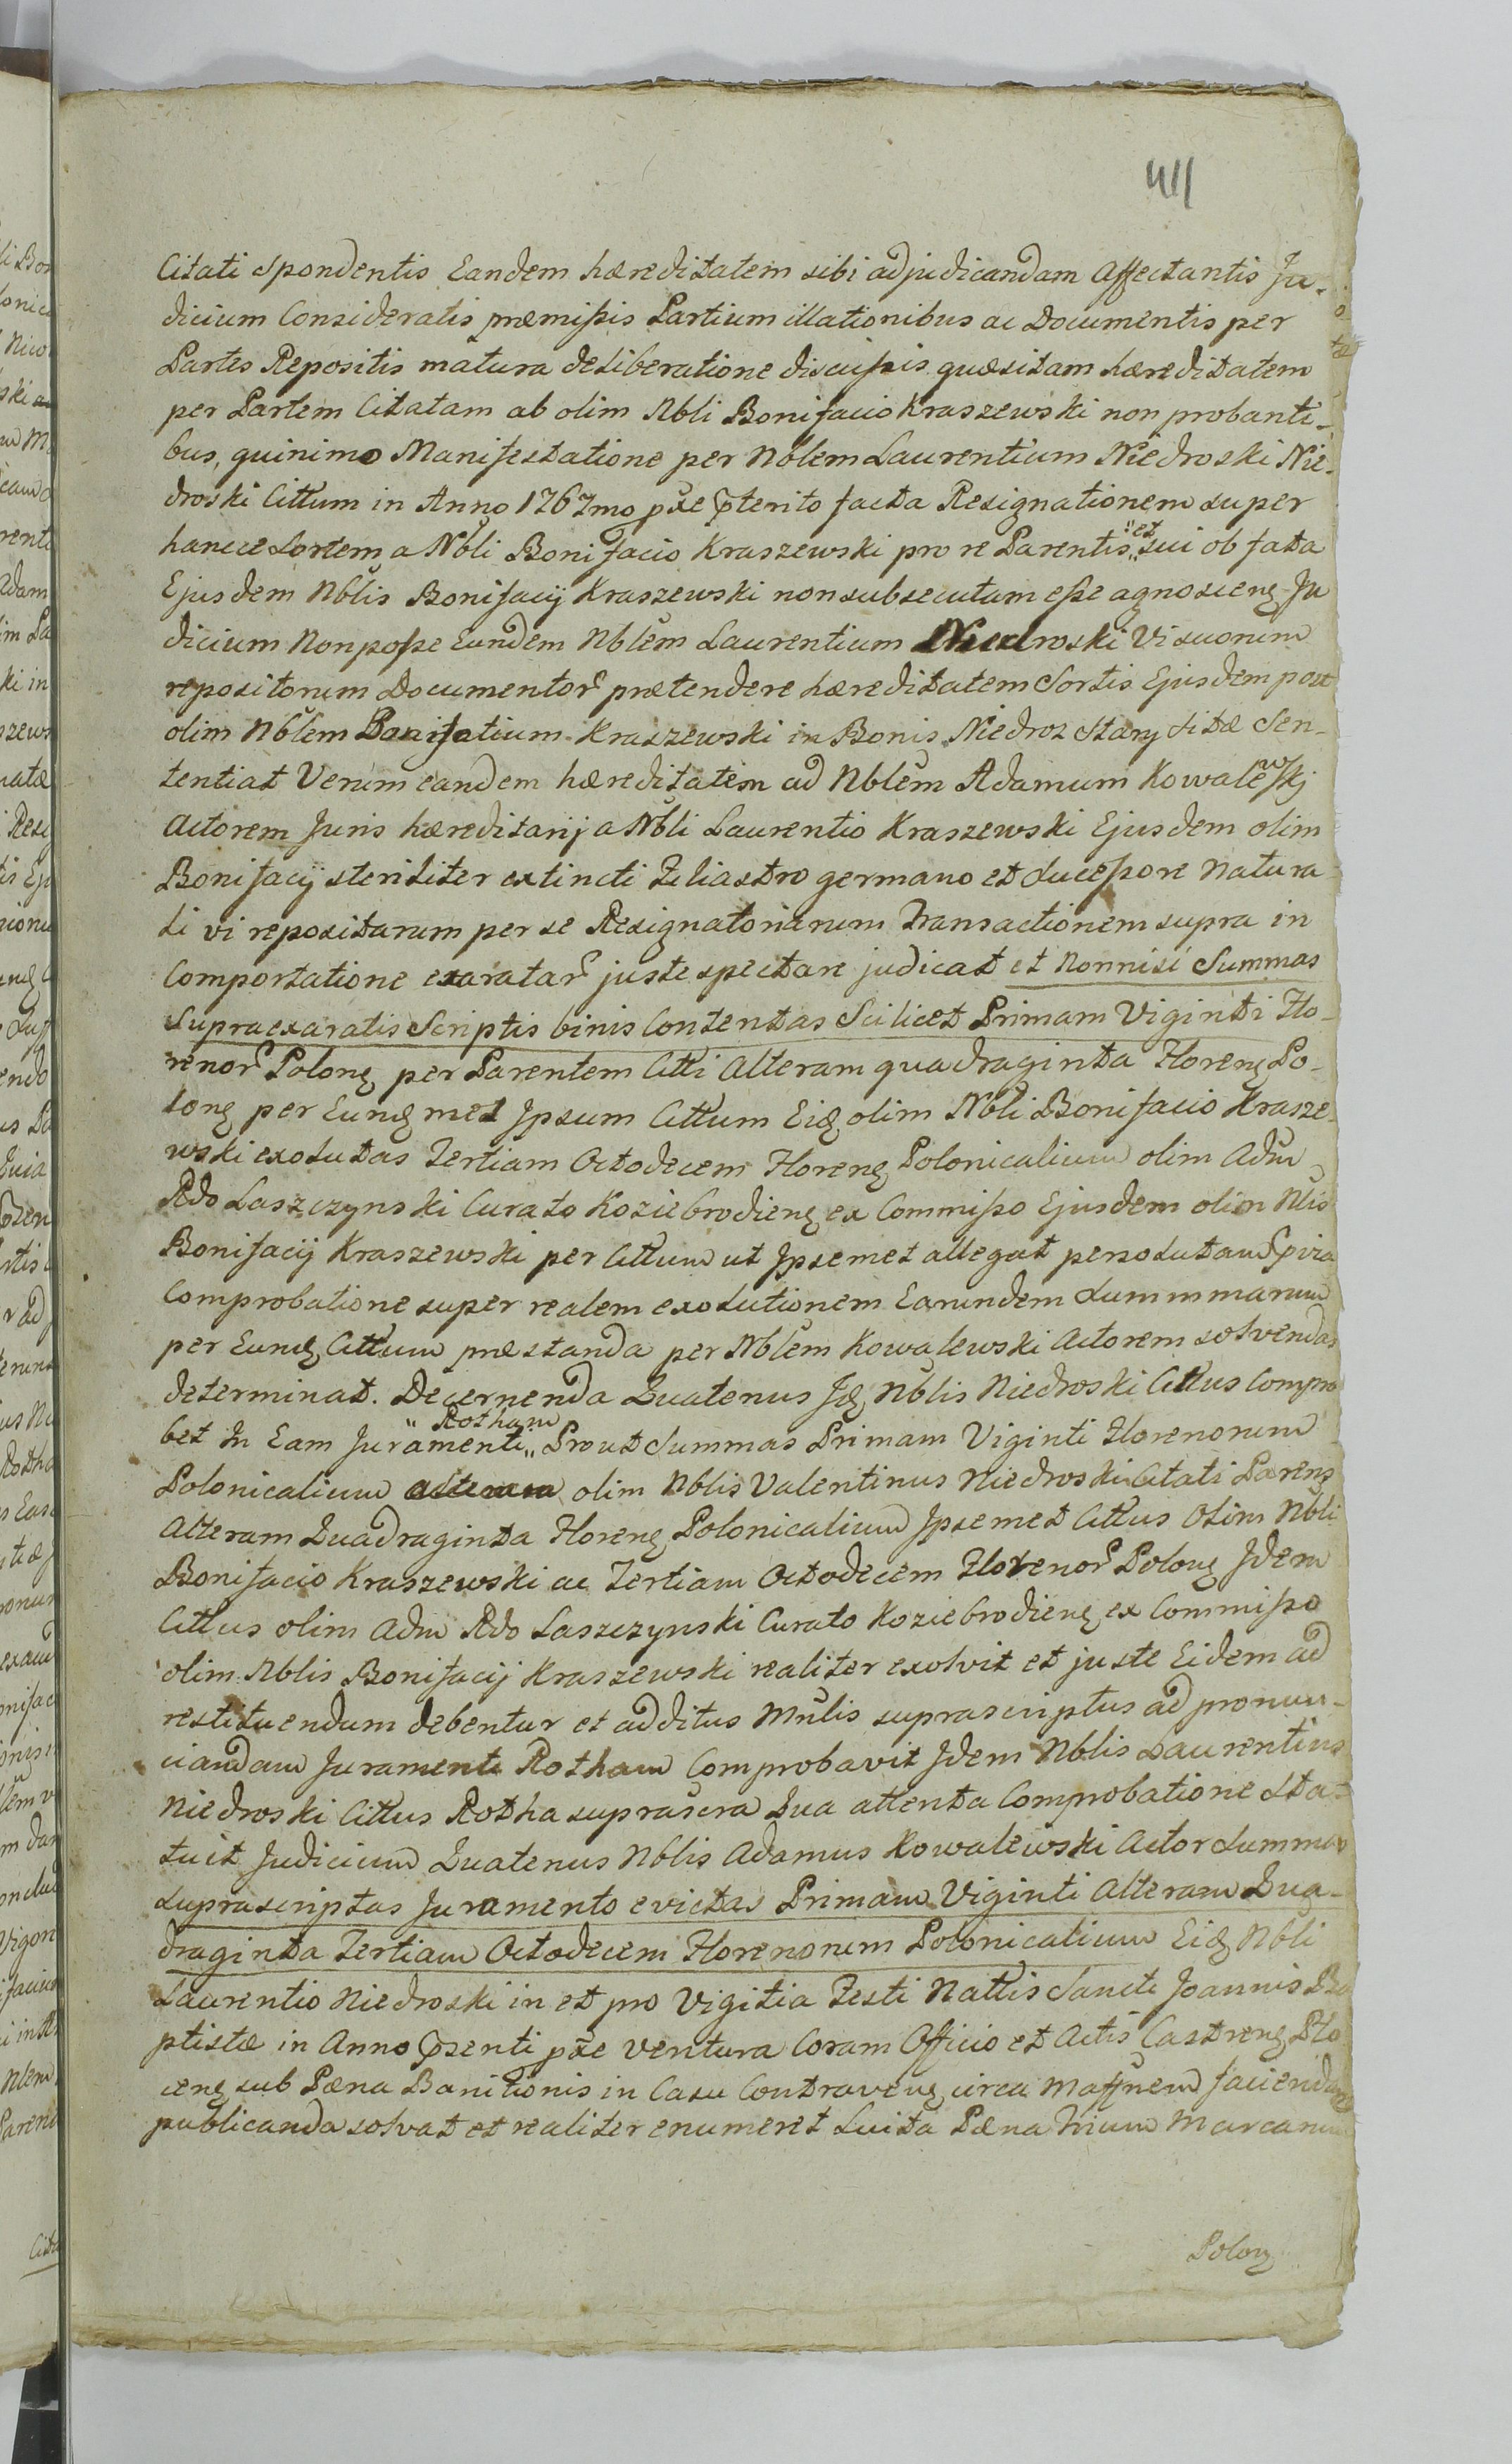 411
Citati Spondentis Eandem hæreditatem sibi adjudicandam Affectantis Ju-
dicium Consideratis præmissis Partium illationibus ac Documentis per
Partes Repositis matura deliberatione discussis quæsitam hæreditatem
per Partem Citatam ab olim Nbli Bonifacio Kraszewski non probanti-
bus, quinimo Manifestatione per Nblem Laurentium Niedroski Nie-
droski Cittum in Anno 1767mo pxe præterito facta Resignationem super
hancce Sortem a Nbli Bonifacio Kraszewski pro re Parentis et sui ob fata
Ejusdem Nblis Bonifacij Kraszewski non subsecutam esse agnoscens Ju
dicium Non posse Eundem Nblem Laurentium Niedroski Vi suorum
repositorum Documentor prætendere hæreditatem Sortis Ejusdem post
olim Nblem Bonifatium Kraszewski in Bonis Niedroz Stary Sitæ Sen-
tentiat Verum eandem hæreditatem ad Nblem Adamum Kowalewskj
Actorem Juris hæreditarij a Nbli Laurentio Kraszewski Ejusdem olim
Bonifacij steriliter extincti Filiastro germano et Sucessore Natura
li vi repositarum per se Resignatoriarum Transactionem supra in
Comportatione exaratar juste spectare judicat et Nonnisi Summas
Supraexaratis Scriptis binis Contentas Scilicet Primam Viginti Flo-
renor Polon per Parentem Citti Alteram quadraginta Floren Po-
lon per Eund met Ipsum Cittum Eid olim Nbli Bonifacio Krasze-
wski exolutas Tertiam Octodecem Floren Polonicalium olim Adm
Rdo Laszczynski Curato Koziebrodien ex Commisso Ejusdem olim Nlis
Bonifacij Kraszewski per Cittum ut Ipsemet allegat persolutam
Comprobatione super realem exolutionem Earundem Summmarum
per Eund Cittum præstanda per Nblem Kowalewski Actorem solvendas
determinat. Decernenda Quatenus Id Nblis Niedroski Cittus Compro
bet In Eam Juramenti Rotham Prout Summas Primam Viginti Florenorum
Polonicalium olim Nblis Valentinus Niedroski Citati Parens
Alteram Quadraginta Floren Polonicalium Ipsemet Cittus Olim Nbli
Bonifacio Kraszewski ac Tertiam Octodecem Florenor Polon Idem
Cittus olim Adm Rdo Laszczynski Curato Koziebrodien ex Commisso
olim Nblis Bonifacij Kraszewski realiter exolvit et juste Eidem ad
restituendum debentur et additus Mnlis suprascriptus ad pronun-
ciandam Juramenti Rotham Comprobavit Idem Nblis Laurentius
Niedroski Cittus Rotha suprascra Qua attenta Comprobatione Sta-
tuit Judicium Quatenus Nblis Adamus Kowalewski Actor Summas
Suprascriptas Juramento evictas Primam Viginti Alteram Qua-
draginta Tertiam Octodecem Florenorum Polonicalium Eid Nbli
Laurentio Niedroski in et pro Vigilia Festi Nattis Sancti Joannis Ba
ptistæ in Anno præsenti pxe ventura Coram Officio et Actis Castren Plo
cen sub Pæna Banitionis in Casu Contraven circa Maffnem faciendam
publicanda solvat et realiter enumeret Luita Pæna Trium Marcarum
Polon